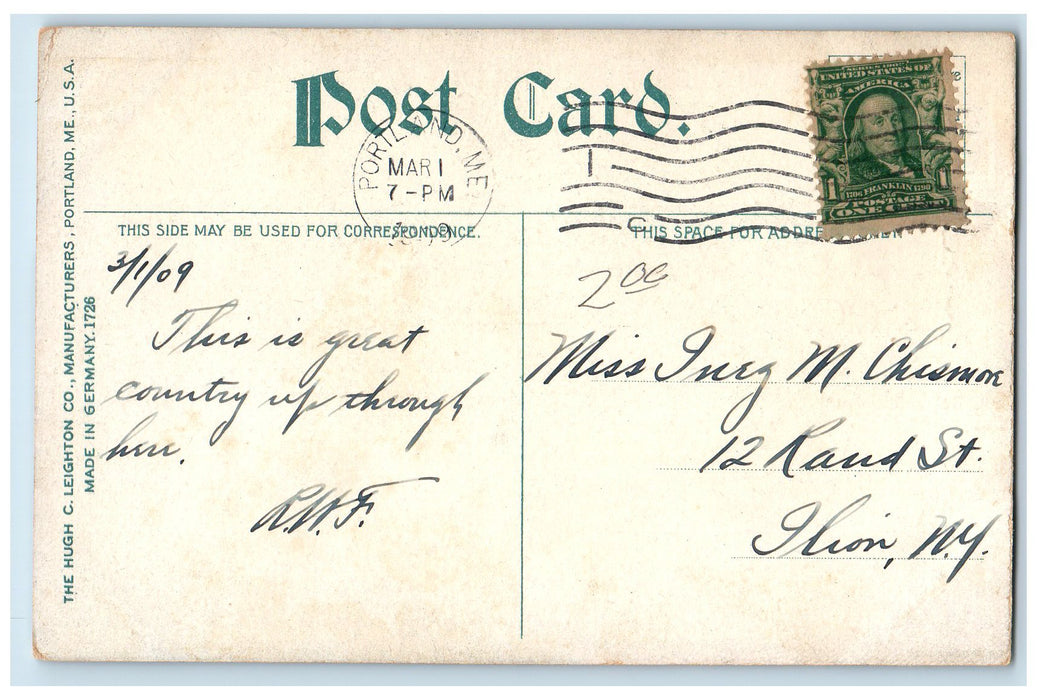 Post Card.
PORTLAND, ME.
MAR 1
7-PM
1909
1
C
SERIES 1902
UNITED STATES OF
AMERICA
1706 FRANKLIN 1790
POSTAGE
ONE CENT
THIS SIDE MAY BE USED FOR CORRESPONDENCE.
3/1/09
This is great
country up through
here.
R.W.F.
THIS SPACE FOR ADDRE
2 00
Miss Inez M. Chismore
12 Rand St.
Ilion, N.Y.
THE HUGH C. LEIGHTON CO., MANUFACTURERS, PORTLAND, ME., U.S.A.
MADE IN GERMANY. 1726